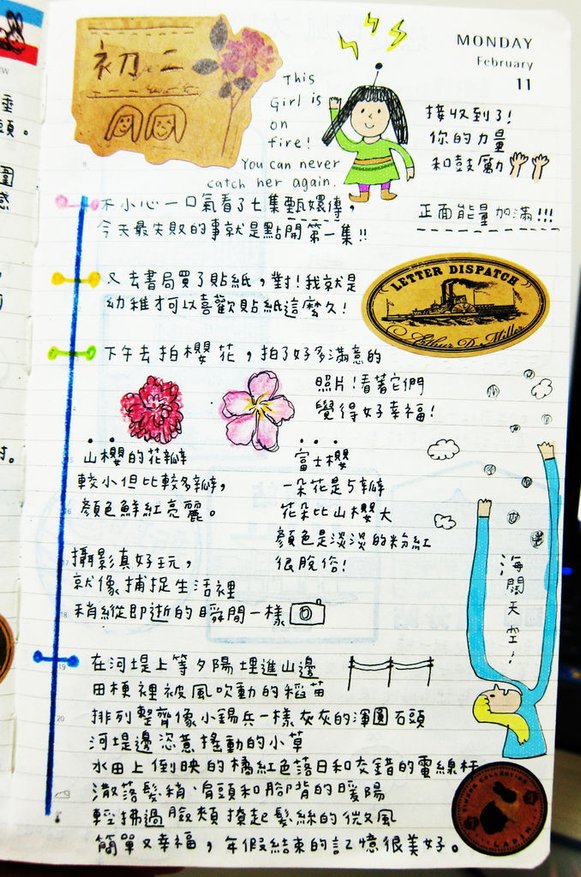 MONDAY
February
11
初二
This
Girl is
on
fire!
You can never
catch her again.
接收到了!
你的力量
和鼓勵
正面能量加滿!!!
不小心一口氣看了七集甄嬛傳,
今天最失敗的事就是點開第一集!!
又去書局買了貼紙,對!我就是
幼稚才可以喜歡貼紙這麼久!
LETTER DISPATCH
Arthur D. Miller
下午去拍櫻花,拍了好多滿意的
照片!看著它們
覺得好幸福!
山櫻的花瓣
較小但比較多瓣,
顏色鮮紅亮麗。
富士櫻
一朵花是5瓣
花朵比山櫻大
顏色是淡淡的粉紅
很脫俗!
攝影真好玩,
就像捕捉生活裡
稍縱即逝的瞬間一樣
海闊天空!
在河堤上等夕陽埋進山邊
田梗裡被風吹動的稻苗
排列整齊像小錫兵一樣灰灰的渾圓石頭
河堤邊恣意搖動的小草
水田上倒映的橘紅色落日和交錯的電線杆
灑落髮稍、肩頭和腳背的暖陽
輕拂過臉頰撩起髮絲的微風
簡單又幸福,年假結束的記憶很美好。